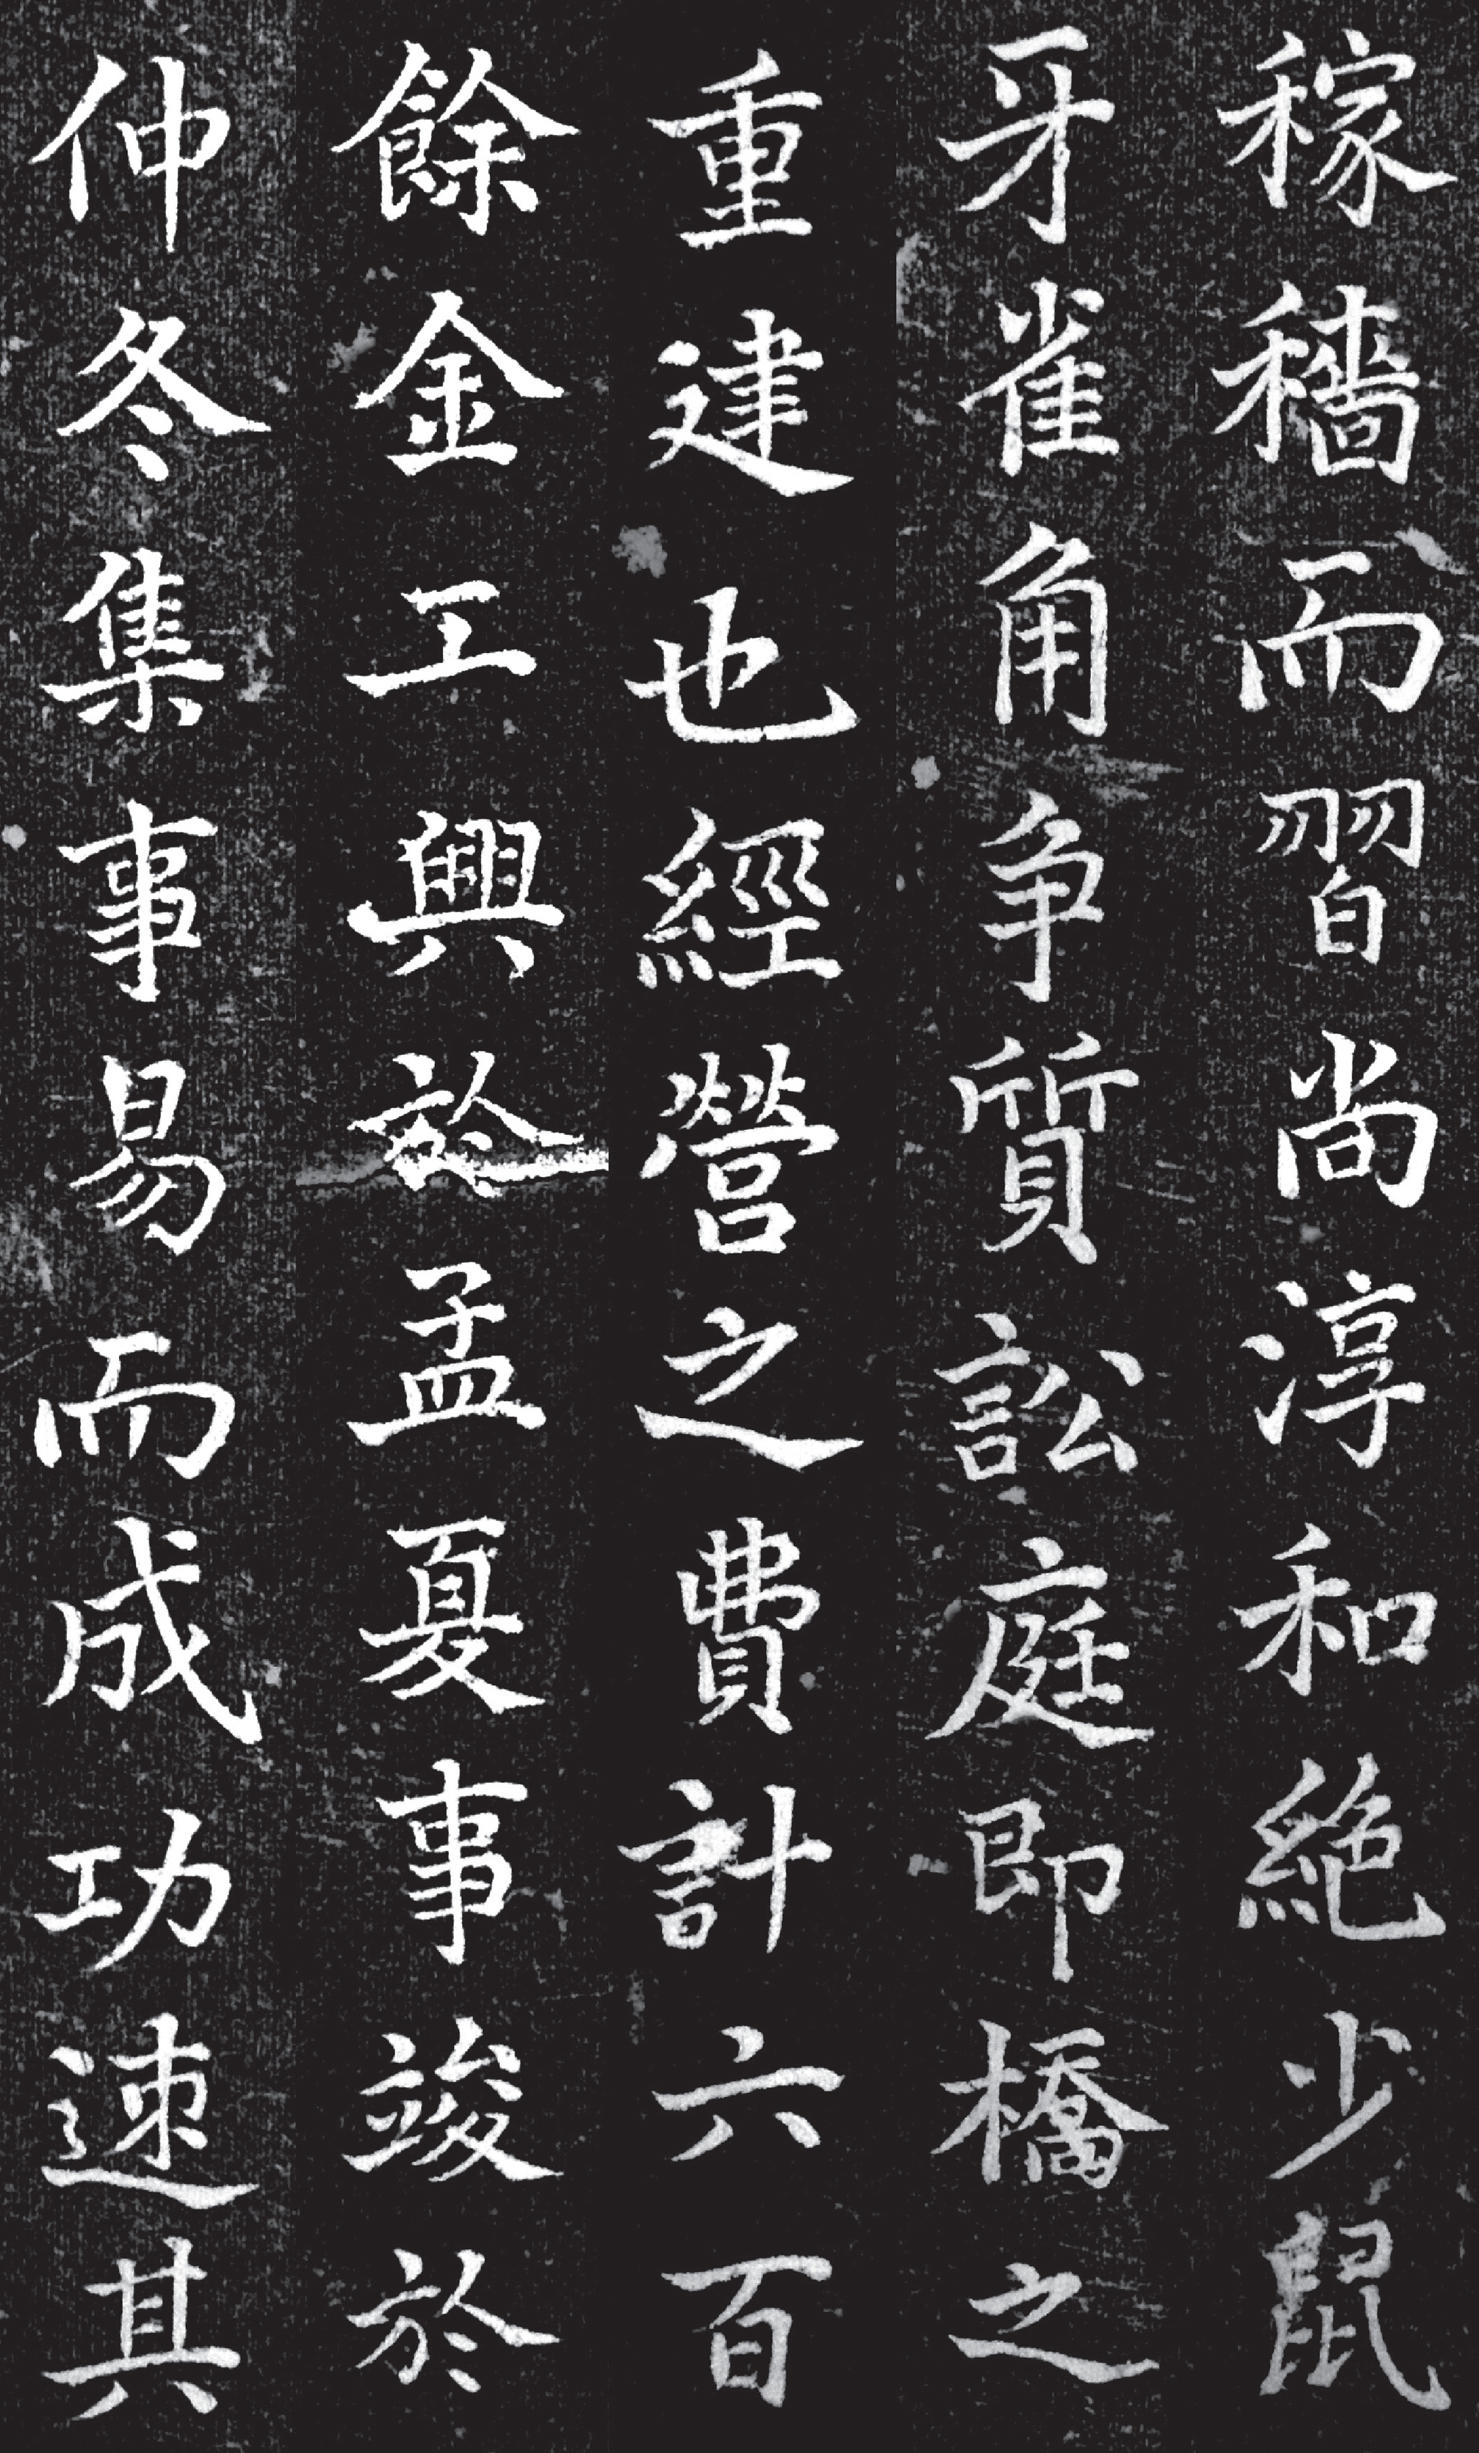 稼穡而習尚淳和絶少鼠
牙雀角争質訟庭即橋之
重建也經營之費計六百
餘金工興於孟夏事竣於
仲冬集事易而成功速其